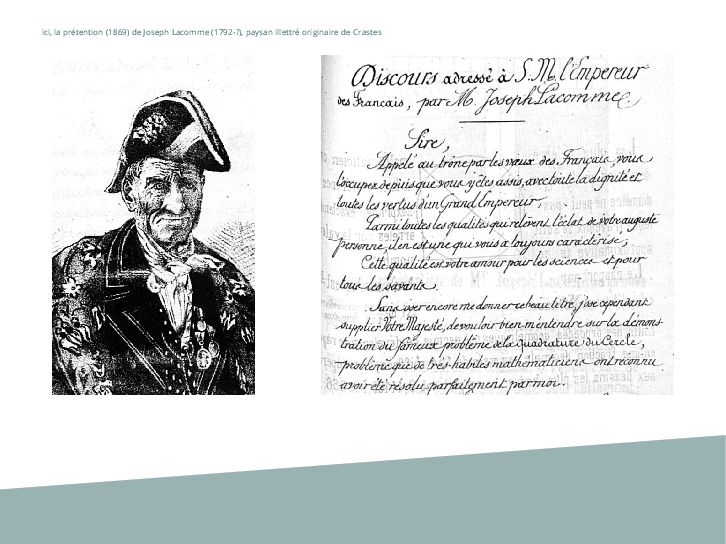 ici, la prétention (1869) de Joseph Lacomme (1792-?), paysan illettré originaire de Crastes
Discours adressé à S. M. l'Empereur
des Français, par M. Joseph Lacomme.
Sire,
Appelé au trône par les vœux des Français, vous
l'occupez depuis que vous y êtes assis, avec toute la dignité et
toutes les vertus d'un Grand Empereur,
Parmi toutes les qualités qui relèvent l'éclat de votre auguste
personne, il en est une qui vous a toujours caractérisé;
Cette qualité est votre amour pour les sciences et pour
tous les savants.
Sans oser encore me donner ce beau titre, j'ose cependant
supplier Votre Majesté, de vouloir bien m'entendre sur la démons-
tration du fameux problème de la quadrature du Cercle,
problème que de très-habiles mathématiciens ont reconnu
avoir été résolu parfaitement par moi.